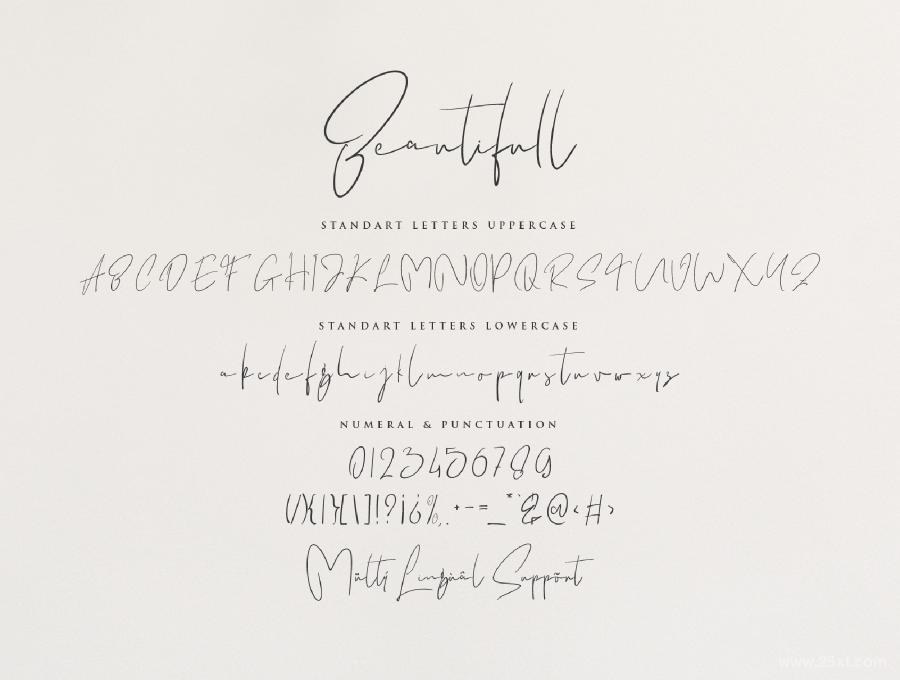 Beautifull
STANDART LETTERS UPPERCASE
ABCDEFGHIJKLMNOPQRSTUVWXYZ
STANDART LETTERS LOWERCASE
abcdefghijklmnopqrstuvwxyz
NUMERAL & PUNCTUATION
0123456789
()/{|}[\]!?¡¿%,.+-=_*'&@<#>
Mülti Lingüâl Suppört
www.25xt.com